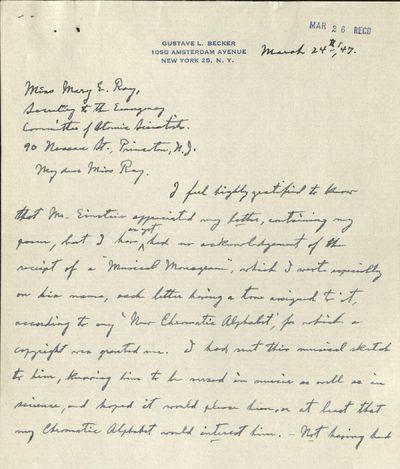 MAR 26 RECD
GUSTAVE L. BECKER
1050 AMSTERDAM AVENUE
NEW YORK 25, N. Y.
March 24th, '47.
Miss Mary E. Ray,
Secretary to the Emergency
Committee of Atomic Scientists.
90 Nassau St., Princeton, N.J.
My dear Miss Ray.
I feel highly gratified to know
that Mr. Einstein appreciated my letter, containing my
poem, but I have as yet had no acknowledgement of the
receipt of a "Musical Monogram", which I wrote especially
on his name, each letter having a tone assigned to it,
according to my "New Chromatic Alphabet", for which a
copyright was granted me. I had sent this musical sketch
to him, knowing him to be versed in music as well as in
science, and hoped it would please him, or at least that
my Chromatic Alphabet would interest him. – Not having had